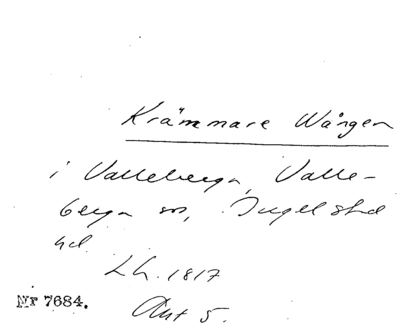 Krämmare Wången
i Valleberga, Valle-
berga sn, Ingelstad
hd
Lh. 1817
Akt 5.
Nr 7684.